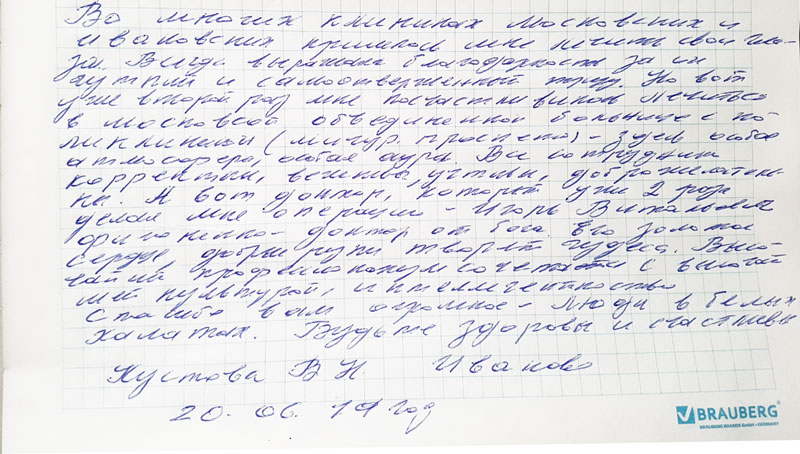 Во многих клиниках московских и
ивановских пришлось мне лечить свои гла-
за. Всегда выражала благодарность за их
чуткий и самоотверженный труд. Но вот
уже второй раз мне посчастливилось лечиться
в московской объединенной больнице с по-
ликлиникой (Мичур. проспект) - здесь особая
атмосфера, особая аура. Все сотрудники
корректны, вежливы, учтивы, доброжелатель-
ны. А вот доктор, который уже 2 раза
делал мне операцию - Игорь Витальевич
- доктор от бога. Его золотое
сердце, добрые руки творят чудеса. Высо-
чайший профессионализм сочетается с высочай
шей культурой, интеллигентностью
Спасибо вам огромное - люди в белых
халатах. Будьте здоровы и счастливы
Хустова В Н Иваново
20. 06. 19 год
BRAUBERG
BRAUBERG BRANDS GmbH • GERMANY